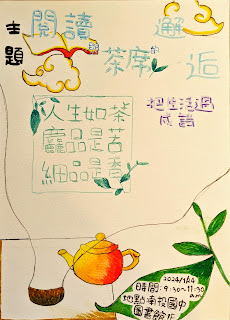 主題
閱讀與茶席的邂逅
把生活過成詩
人生如茶
麤品是苦
細品是香
2024/1/24
時間:9:30~11:30 am
地點:南投國中
圖書館1F